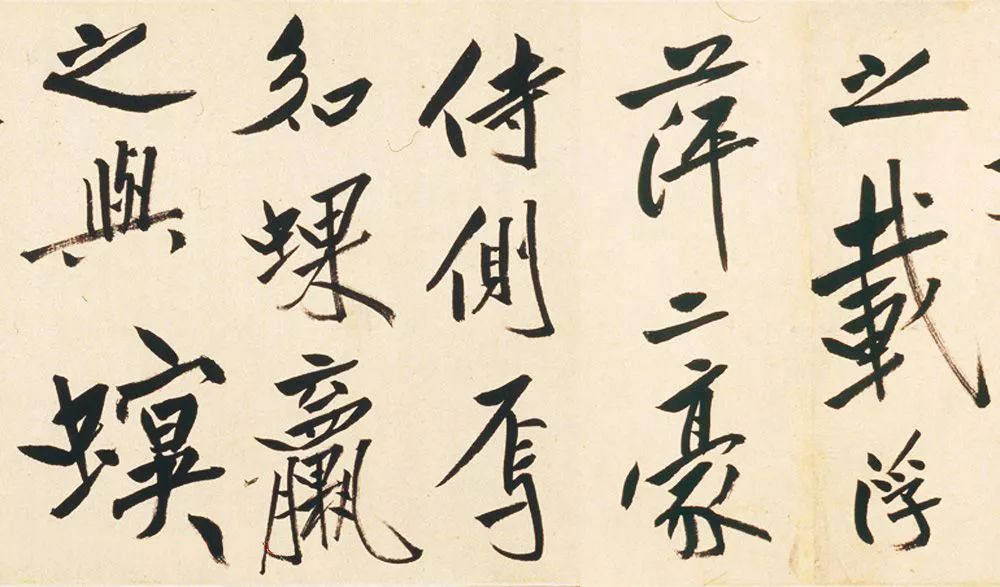 之載浮
萍二豪
侍側焉
知蜾蠃
之與螟